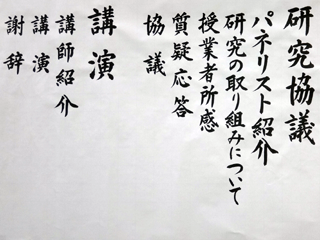 研究協議
パネリスト紹介
研究の取り組みについて
授業者所感
質疑応答
協議
講演
講師紹介
講演
謝辞